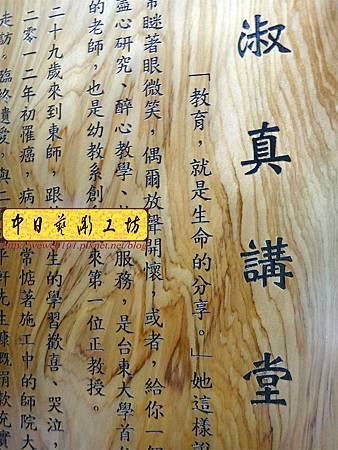 淑真講堂
「教育，就是生命的分享。」她這樣說
常瞇著眼微笑，偶爾放聲開懷，或者，給你一個
盡心研究、醉心教學、
服務，是台東大學首位
的老師，也是幼教系創
來第一位正教授。
二十九歲來到東師，跟
生的學習歡喜、哭泣，
二零一二年初罹癌，病
常惦著施工中的師院大
走訪。臨終
中日藝彫工坊